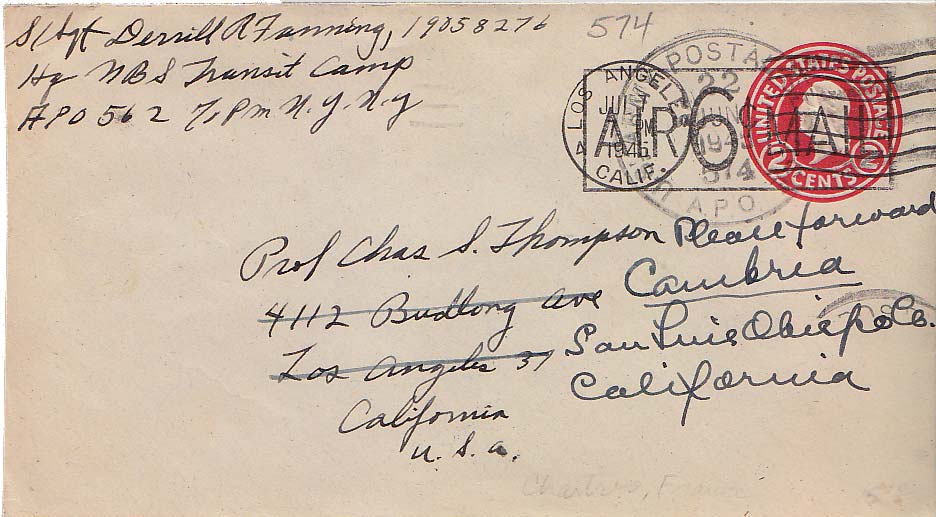 S/Sgt Derrill R Fanning, 19058276
Hq NBS Transit Camp
APO 562 % Pm N.Y. N.Y
574
U.S. ARMY POSTAL
22
JUN
1945
574
A.P.O.
LOS ANGELES
JUL
PM
1945
CALIF.
4
AIR 6¢ MAIL
UNITED STATES POSTAGE
2 CENTS 2
Prof Chas S. Thompson
4112 Budlong Ave
Los Angeles 37
California
U.S.A.
Please forward
Cambria
San Luis Obispo Co.
California
Chartres, France